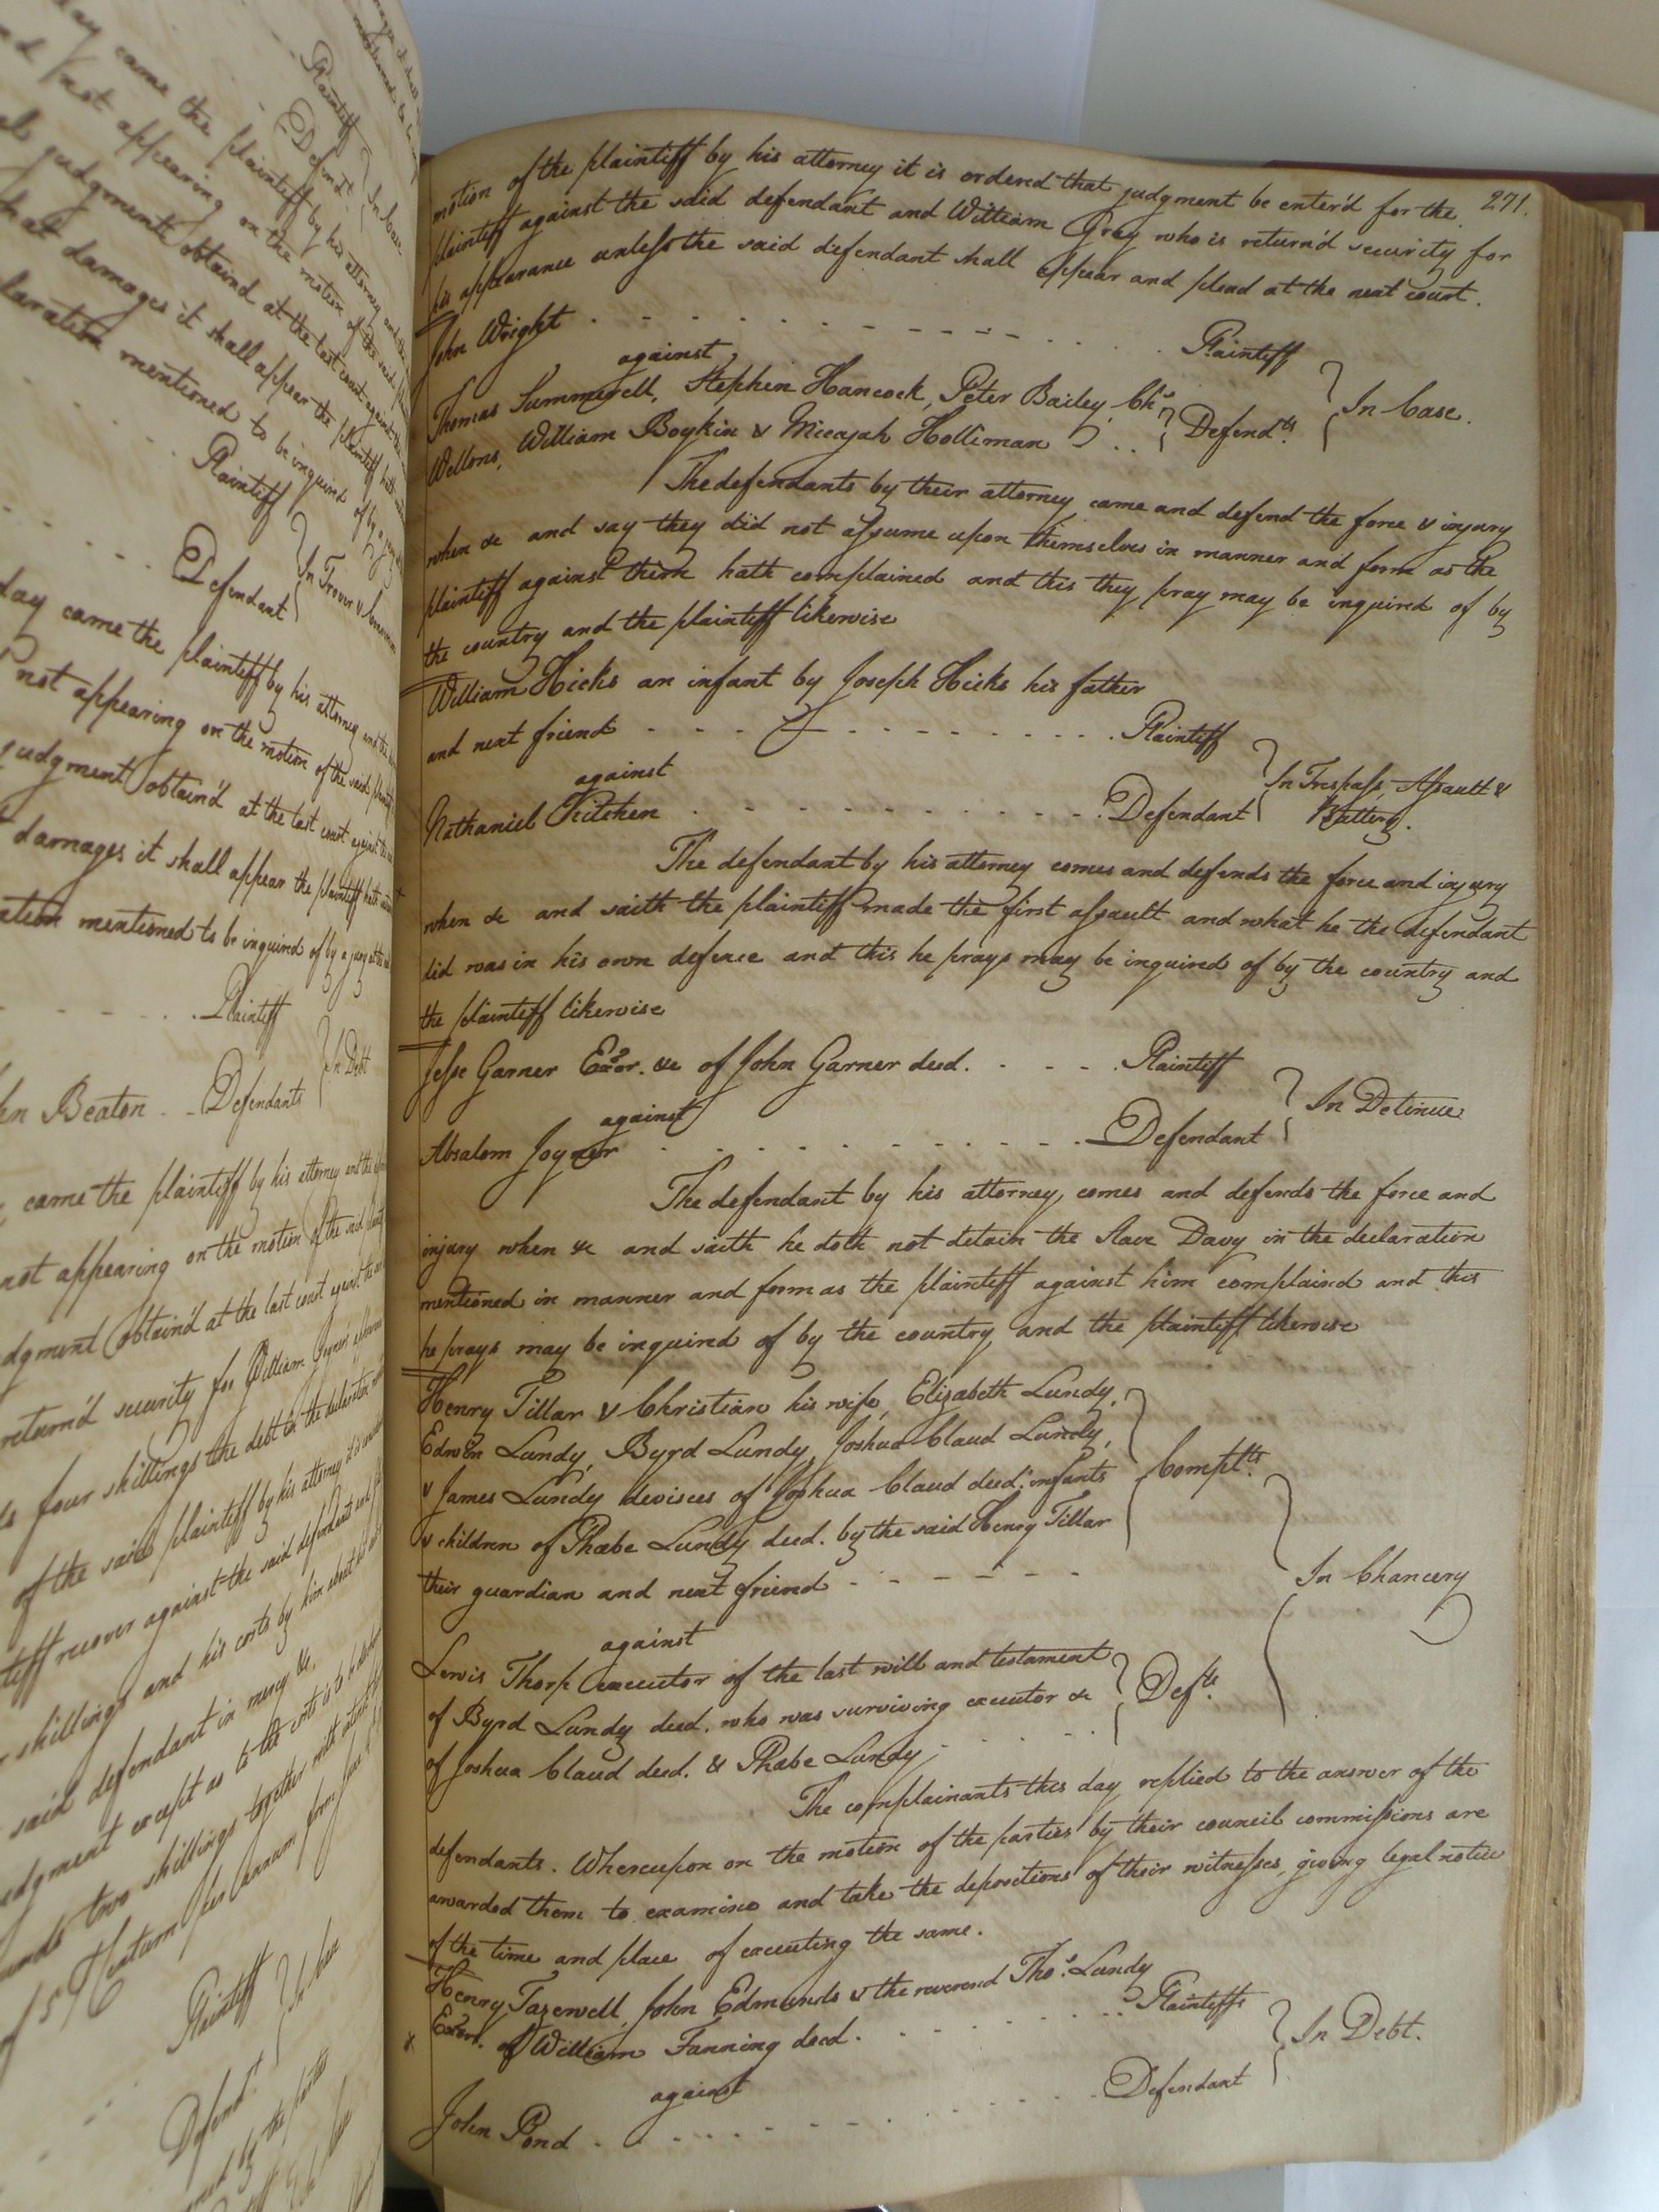 day came the plaintiff by his attorney and the
not appearing on the motion of the said
judgment obtain'd at the last court against the
that damages it shall appear the plaintiff hath
declaration mentioned to be inquired of by a jury
Plaintiff
Defendant
In Trover &
day came the plaintiff by his attorney and the
not appearing on the motion of the said
judgment obtain'd at the last court against the
damages it shall appear the plaintiff hath
mentioned to be inquired of by a jury at the
Plaintiff
In Debt
Beaton Defendants
came the plaintiff by his attorney and the
not appearing on the motion of the said
obtain'd at the last court against the
return'd security for William Joyner's
four shillings the debt in the declaration
of the said plaintiff by his attorney it is
recover against the said defendant
shillings and his costs by him about his
said defendant in mercy &c.
except as to the costs is to be
two shillings together with
per annum from
Plaintiff
Defend.t
271.
motion of the plaintiff by his attorney it is ordered that judgment be enter'd for the
plaintiff against the said defendant and William Gray who is return'd security for
his appearance unless the said defendant shall appear and plead at the next court.
John Wright Plaintiff
against
In Case.
Thomas Summerell, Stephen Hancock, Peter Bailey, Ch.s
Wellons, William Boykin & Micajah Holliman Defend.ts
The defendants by their attorney came and defend the force & injury
when &c and say they did not assume upon themselves in manner and form as the
plaintiff against them hath complained and this they pray may be inquired of by
the country and the plaintiff likewise
William Hicks an infant by Joseph Hicks his father
and next friend Plaintiff
against
In Trespass, Assault &
Battery.
Nathaniel Kitchen Defendant
The defendant by his attorney comes and defends the force and injury
when &c and saith the plaintiff made the first assault and what he the defendant
did was in his own defence and this he prays may be inquired of by the country and
the plaintiff likewise
Jesse Garner Exor. &c of John Garner deed. Plaintiff
against
In Detinue
Absalom Joyner Defendant
The defendant by his attorney comes and defends the force and
injury when &c and saith he doth not detain the slave Davy in the declaration
mentioned in manner and form as the plaintiff against him complaind and this
he prays may be inquired of by the country and the plaintiff likewise
Henry Tillar & Christian his wife, Elizabeth Lundy,
Edwin Lundy, Byrd Lundy, Joshua Claud Lundy,
& James Lundy devisees of Joshua Claud deed. infants
Compl.ts
& children of Phoebe Lundy deed. by the said Henry Tillar
their guardian and next friend
In Chancery
against
Lewis Thorp executor of the last will and testament
of Byrd Lundy deed. who was surviving executor &c Def.ts
of Joshua Claud deed. & Phoebe Lundy
The complainants this day replied to the answer of the
defendants. Whereupon on the motion of the parties by their council commissions are
awarded them to examine and take the depositions of their witnesses, giving legal notice
of the time and place of executing the same.
Henry Tazewell, John Edmunds & the reverend Tho.s Lundy
Exors. of William Fanning deed. Plaintiffs
against
In Debt.
John Pond Defendant